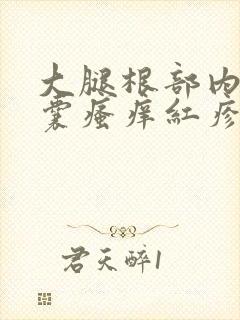 大腿根部内
囊瘙痒红疹
君天醉1